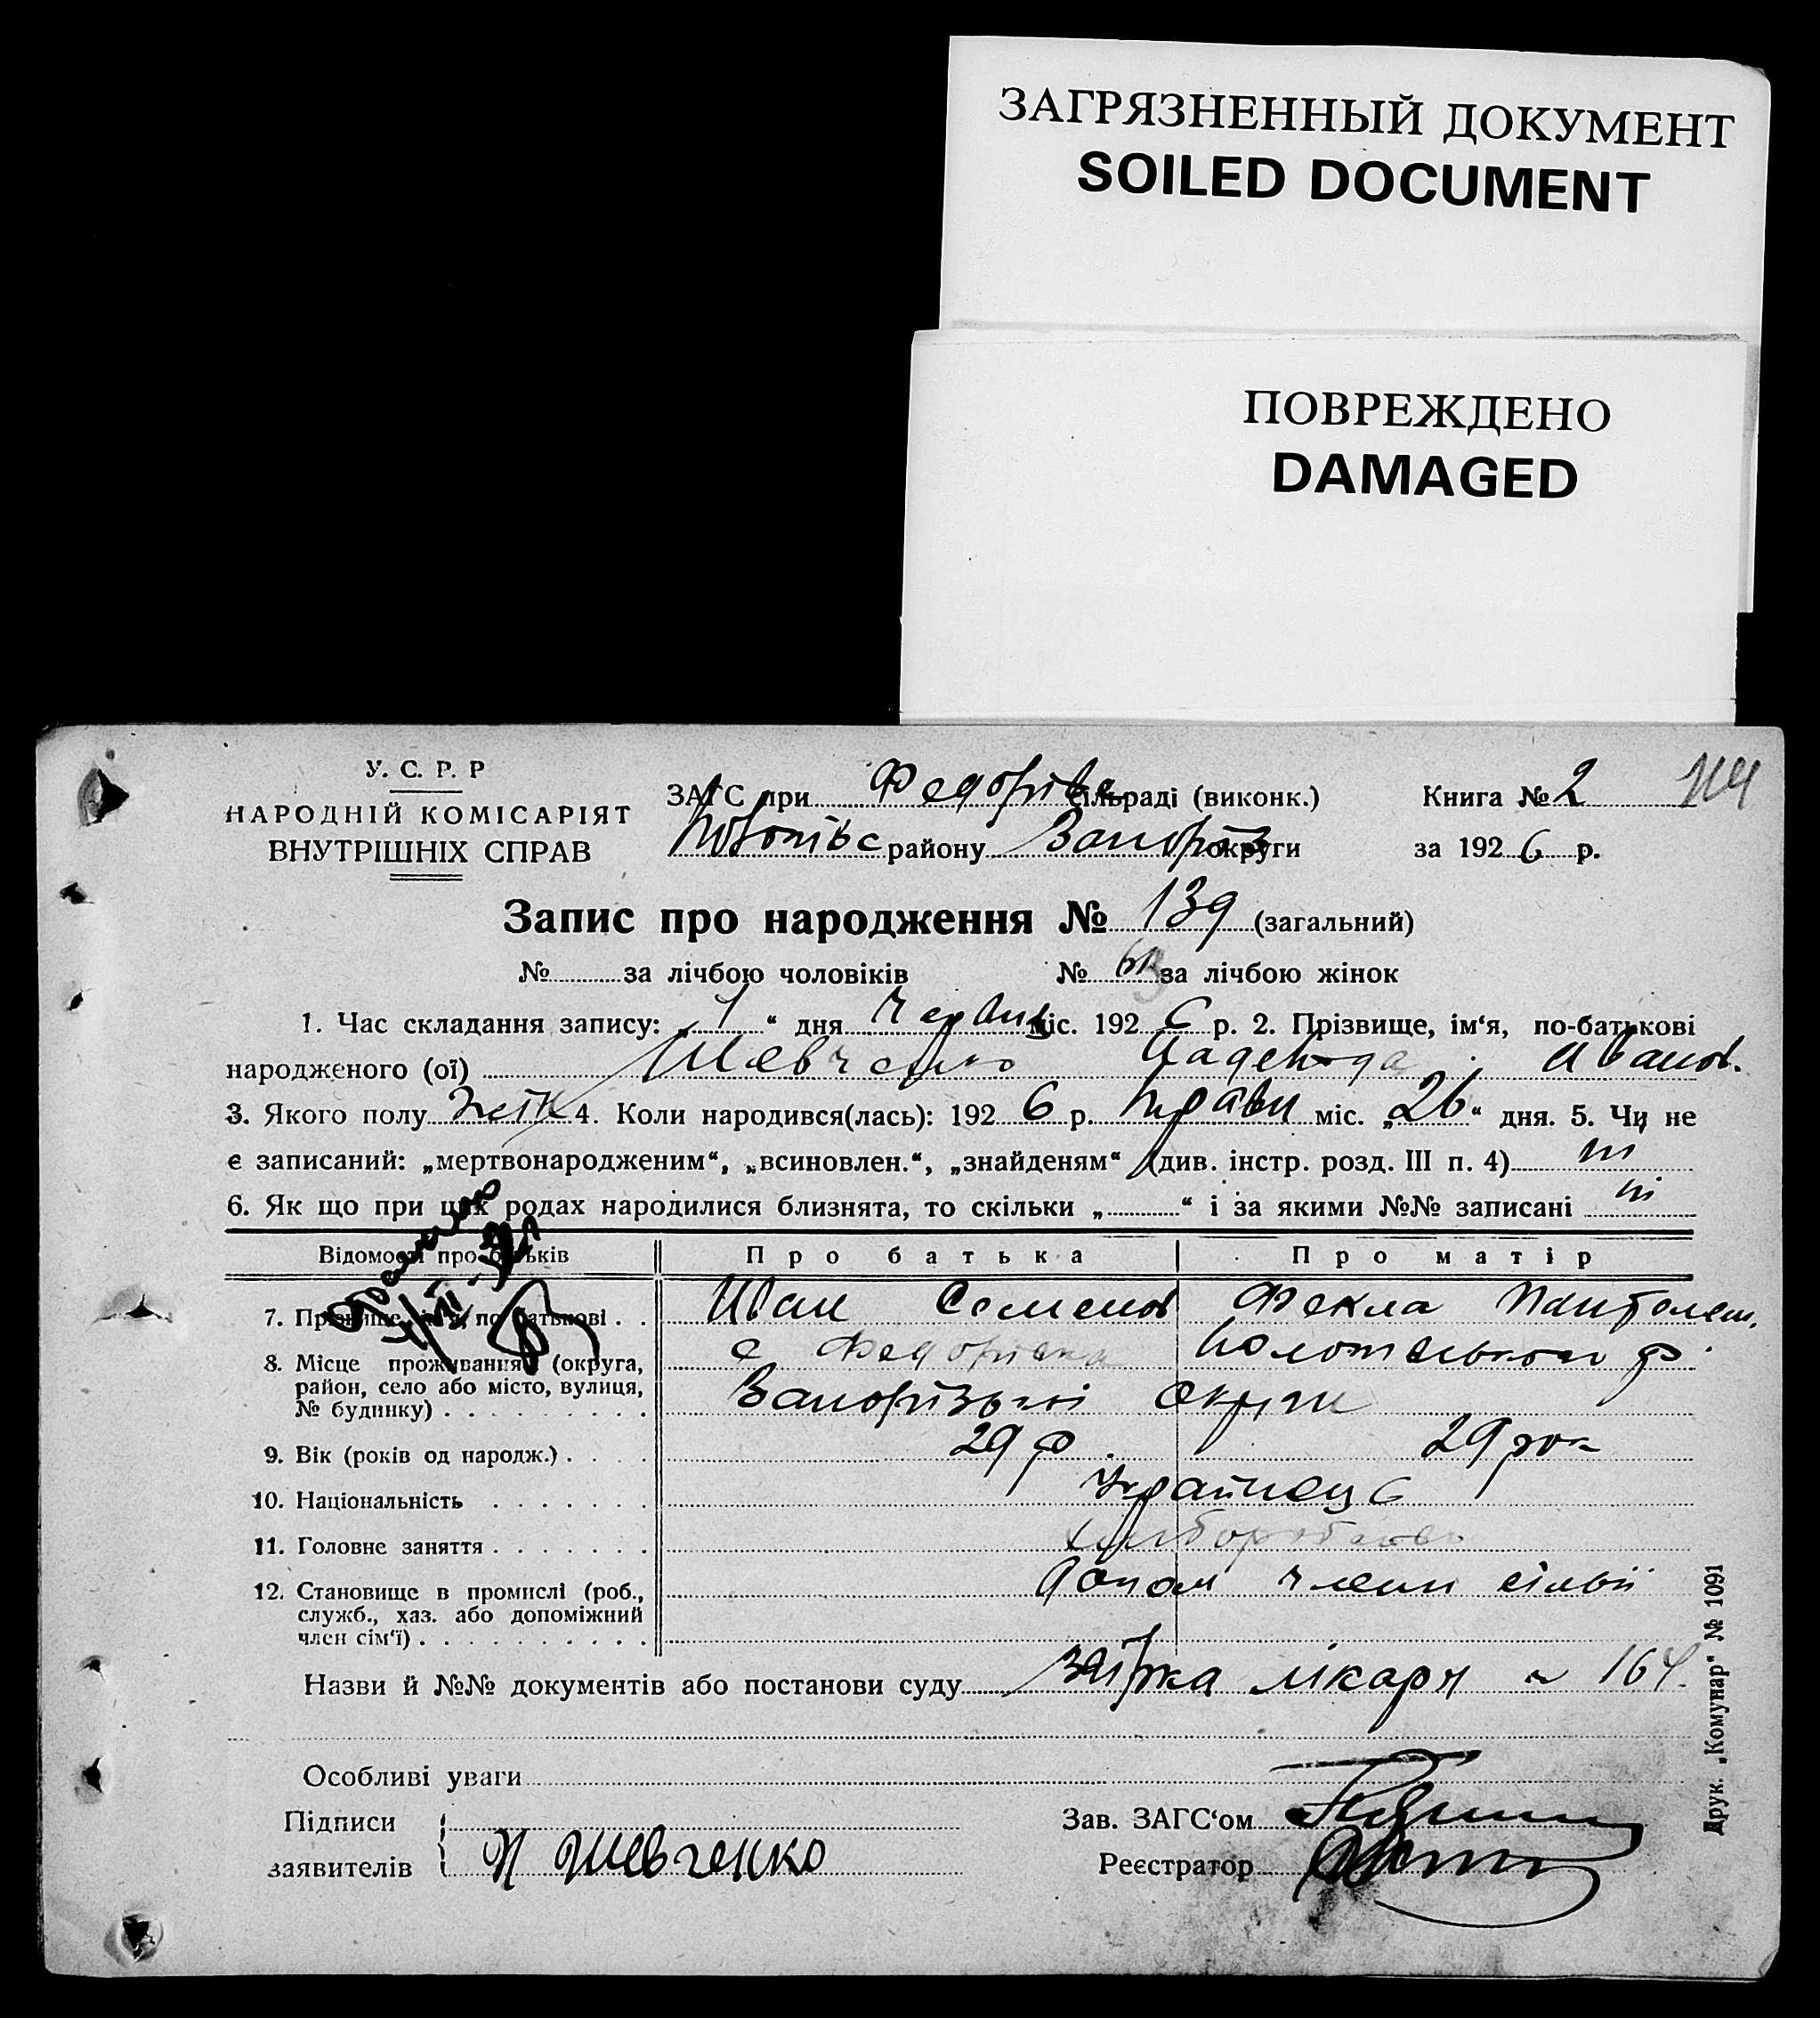 ЗАГРЯЗНЕННЫЙ ДОКУМЕНТ
SOILED DOCUMENT
ПОВРЕЖДЕНО
DAMAGED
У. С. Р. Р
НАРОДНІЙ КОМІСАРІЯТ
ВНУТРІШНІХ СПРАВ
ЗАГС при Федорівс сільраді (виконк.)
району Запоріз округи
Книга № 2
за 1926 р.
Запис про народження № 139 (загальний)
№ за лічбою чоловіків № за лічбою жінок
1. Час складання запису: „1“ дня Червня міс. 1926 р. 2. Прізвище, ім‘я, по-батькові
народженого (ої) Шевченко Надежда Иванов.
3. Якого полу жін 4. Коли народився(лась): 1926 р. Травн міс. „26“ дня. 5. Чи не
є записаний: „мертвонародженим“, „всиновлен.“, „знайденям“ (див. інстр. розд. III п. 4) ні
6. Як що при цих родах народилися близнята, то скільки „ “ і за якими №№ записані ні
Відомості про батьків Про батька Про матір
7. Прізвище, ім‘я, по батькові . . Иван Семенов Фекла Пантолеm.
8. Місце проживання (округа, с Федорівка
район, село або місто, вулиця,
№ будинку) . . . . . . . . . Запорізької округи
9. Вік (років од народж.) . . . . 29 р. 29 рок
10. Національність . . . . . . . Українец
11. Головне заняття . . . . . . . хлиборобство
12. Становище в промислі (роб., допом член сімьї
служб., хаз. або допоміжний
член сім‘ї) . . . . . . . . . .
Назви й №№ документів або постанови суду лікаря 164
Особливі уваги
Підписи
заявителів И Шевченко
Зав. ЗАГС‘ом
Реєстратор
Друк. „Комунар“ № 1091